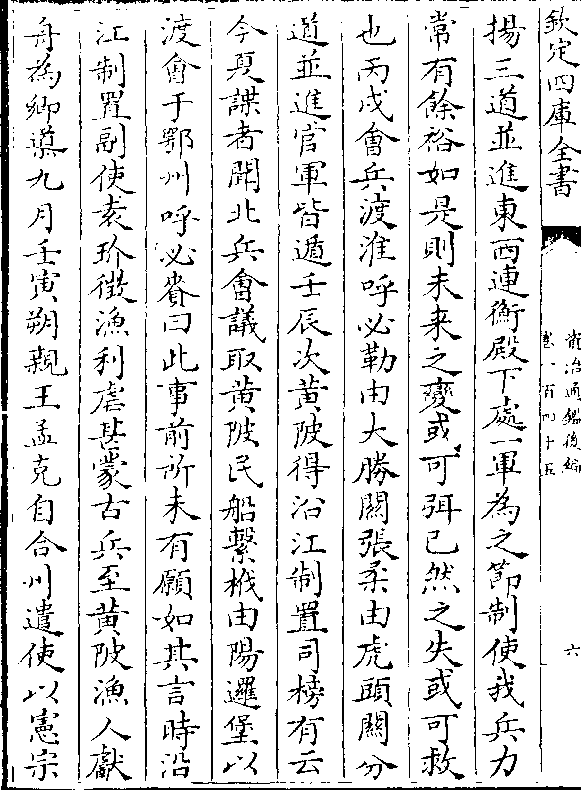 欽定四庫全書
資治通鑑後編
卷一百四十五
六
揚三道並進東西連衡殿下處一軍為之節制使我兵力
常有餘裕如是則未来之變或可弭已然之失或可救
也丙戌會兵渡淮呼必勒由大勝關張柔由虎頭關分
道並進官軍皆遁壬辰次黄陂得沿江制置司榜有云
今夏諜者聞北兵會議取黄陂民船繫栰由陽邏堡以
渡會于鄂州呼必賚曰此事前所未有願如其言時沿
江制置副使袁玠徴漁利虐甚蒙古兵至黄陂漁人獻
舟為鄉導九月壬寅朔親王孟克自合州遣使以憲宗